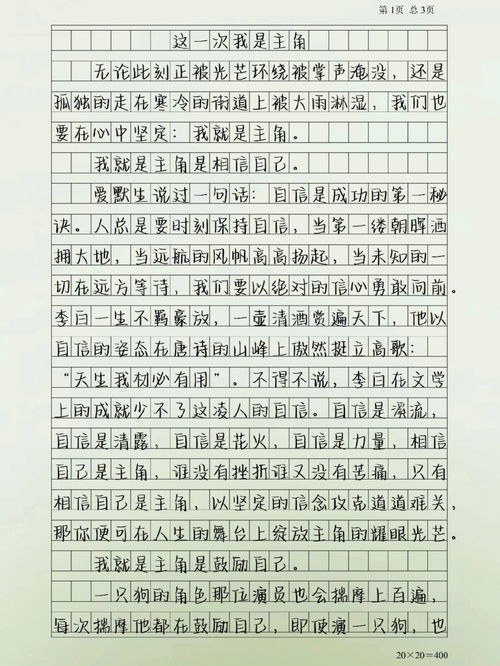 第1页 总3页
这一次我是主角
无论此刻正被光芒环绕被掌声淹没，还是
孤独的走在寒冷的街道上被大雨淋湿，我们也
要在心中坚定：我就是主角。
我就是主角是相信自己。
爱默生说过一句话：自信是成功的第一秘
诀。人总是要时刻保持自信，当第一缕朝晖洒
拥大地，当远航的风帆高高扬起，当未知的一
切在远方等待，我们要以绝对的信心勇敢向前。
李白一生不羁豪放，一壶清酒赏遍天下，他以
自信的姿态在唐诗的山峰上傲然挺立高歌：
“天生我材必有用”。不得不说，李白在文学
上的成就少不了这凌人的自信。自信是溪流，
自信是清露，自信是花火，自信是力量，相信
自己是主角，谁没有挫折谁又没有苦痛，只有
相信自己是主角，以坚定的信念攻克道道难关，
那你便可在人生的舞台上绽放主角的耀眼光芒。
我就是主角是鼓励自己。
一只狗的角色那位演员也会揣摩上百遍，
每次揣摩他都在鼓励自己，即使演一只狗，也
20×20=400